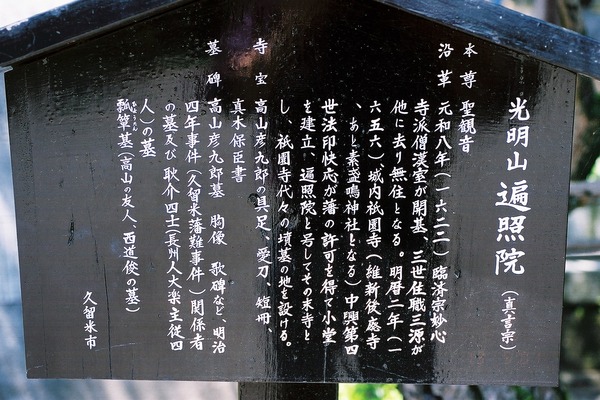 光明山 遍照院 (真言宗)
本尊 聖観音
沿革 元和八年(一六二二)臨済宗妙心
寺派僧漢室が開基、三世住職三源が
他に去り無住となる。明暦二年(一
六五六)、城内祇園寺(維新後廃寺
、あと素盞嗚神社となる)中興第四
世法印快応が藩の許可を得て小堂
を建立、遍照院と号してその末寺と
し、祇園寺代々の墳墓の地を設ける。
寺宝 高山彦九郎の具足、愛刀、短冊、
真木保臣書
墓碑 高山彦九郎墓 胸像 歌碑など、明治
四年事件(久留米藩難事件)関係者
の墓及び 耿介四士(長州人大楽主従四
人)の墓
瓢簞墓(高山の友人、西道俊の墓)
久留米市